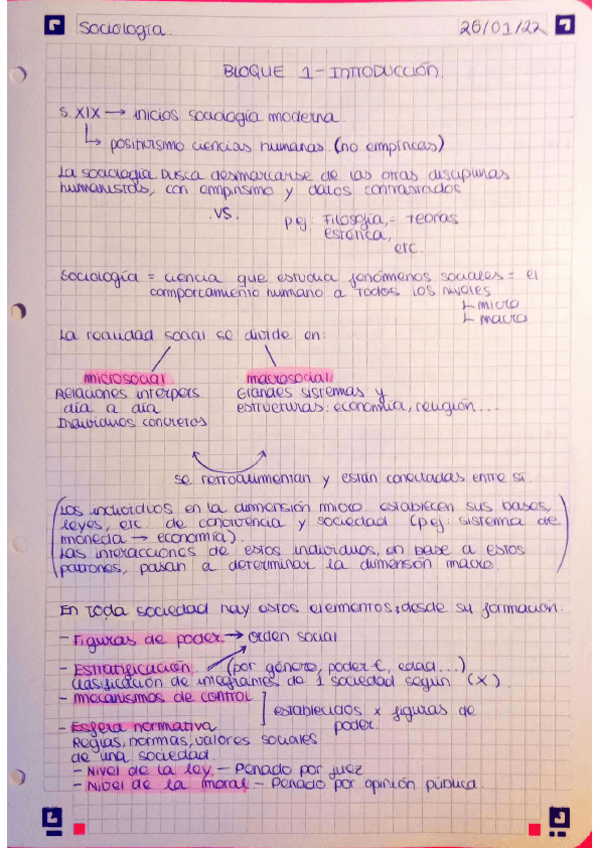 Sociología. 26/01/22
BLOQUE 1 - INTRODUCCIÓN.
S. XIX → inicios sociología moderna
↳ positivismo ciencias humanas (no empíricas)
La sociología busca desmarcarse de las otras disciplinas
humanistas, con empirismo y datos contrastados
.VS. pej: Filosofía, = Teorías
estética,
etc.
Sociología = ciencia que estudia fenómenos sociales = el
comportamiento humano a todos los niveles
micro
macro
La realidad social se divide en:
microsocial macrosocial
Relaciones interpers. Grandes sistemas y
día a día estructuras: economía, religión...
Individuos concretos
se retroalimentan y están conectadas entre sí.
(Los individuos en la dimensión micro establecen sus bases,
leyes, etc. de convivencia y sociedad (pej: sistema de
moneda → economía).
Las interacciones de estos individuos, en base a estos
patrones, pasan a determinar la dimensión macro)
En toda sociedad hay estos elementos, desde su formación:
- Figuras de poder → orden social
- Estratificación (por género, poder €, edad...)
Clasificación de integrantes de 1 sociedad según (x)
- mecanismos de control
establecidos x figuras de
poder.
- Esfera normativa
Reglas, normas, valores sociales
de una sociedad
- Nivel de la ley - Penado por juez
- Nivel de la moral - Penado por opinión pública